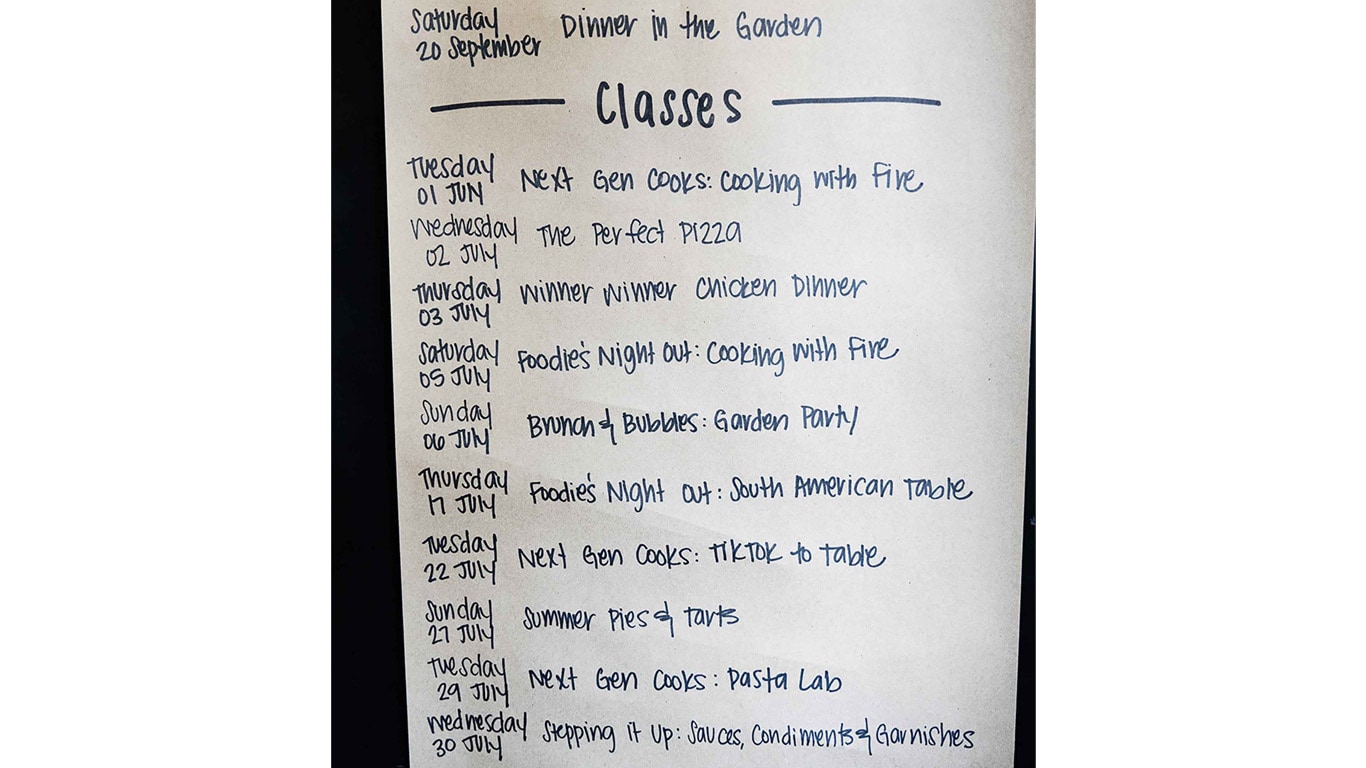 Saturday Dinner in the Garden
20 September
Classes
Tuesday Next Gen Cooks: Cooking with Fire
01 JUN
Wednesday The Perfect Pizza
02 July
Thursday Winner Winner Chicken Dinner
03 July
Saturday Foodie's Night Out: Cooking with Fire
05 July
Sunday Brunch & Bubbles: Garden Party
06 July
Thursday Foodie's Night Out: South American Table
17 July
Tuesday Next Gen Cooks: TikTok to Table
22 July
Sunday Summer Pies & Tarts
27 July
Tuesday Next Gen Cooks: Pasta Lab
29 July
Wednesday Stepping it Up: Sauces, Condiments & Garnishes
30 July